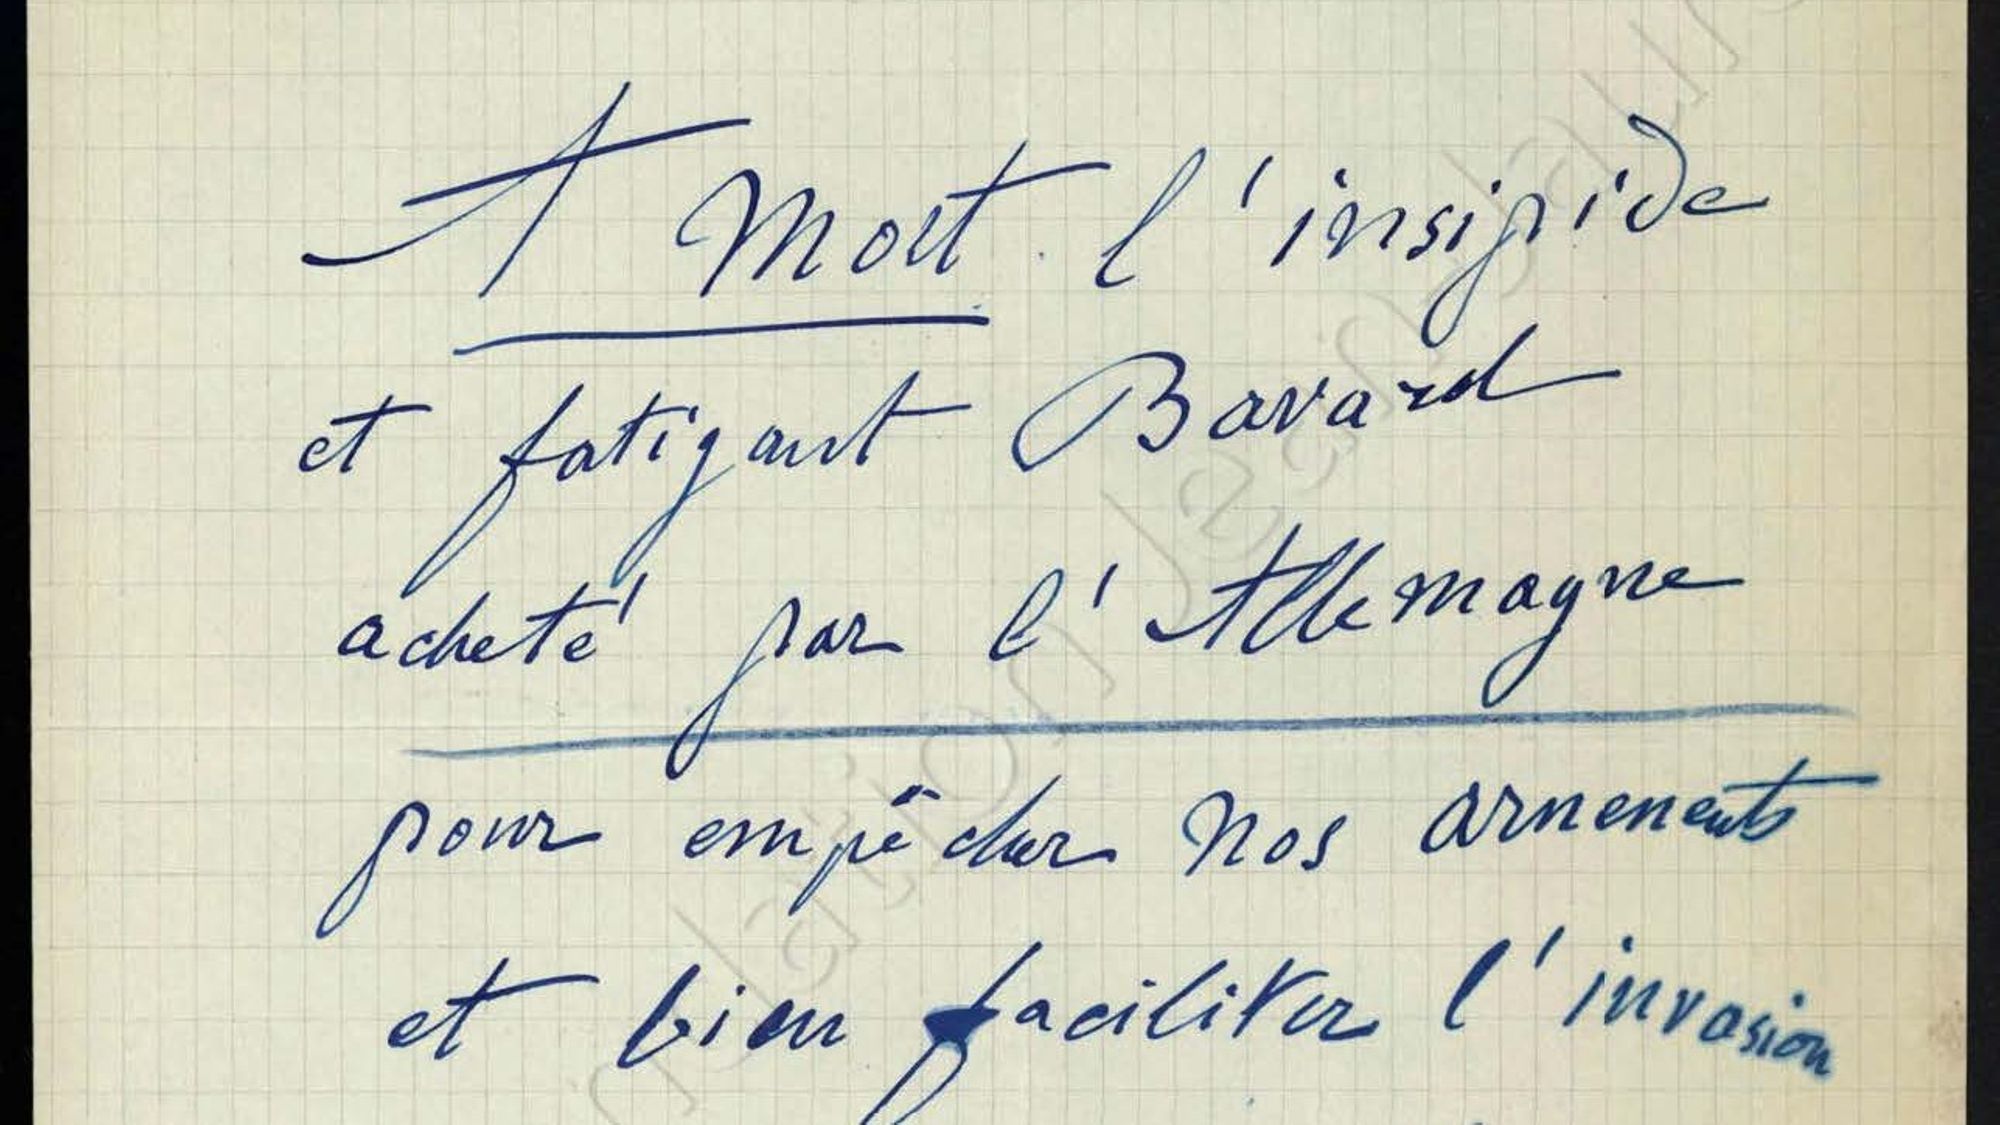 A Mort l'insipide
et fatigant Bavard
acheté par l'Allemagne
pour empêcher nos armements
et bien faciliter l'invasion